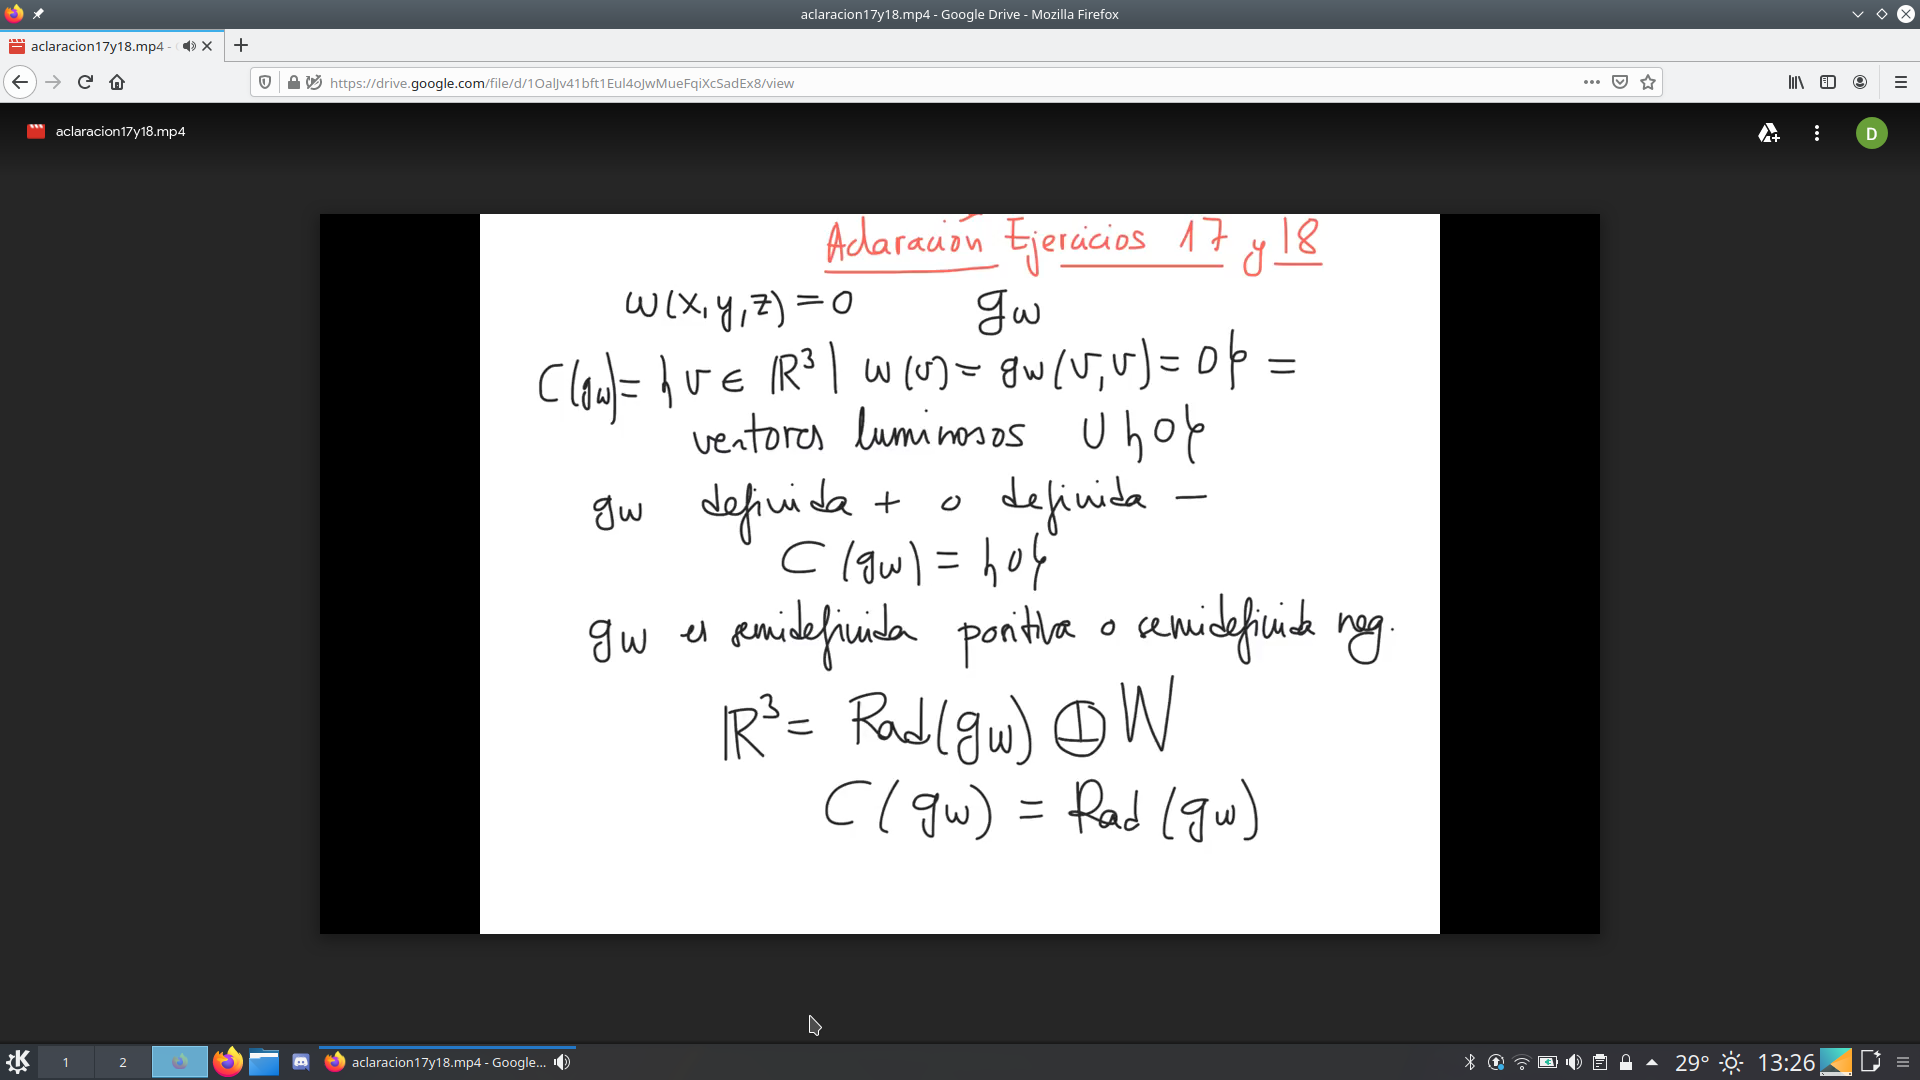 aclaracion17y18.mp4 - Google Drive - Mozilla Firefox
aclaracion17y18.mp4 -
https://drive.google.com/file/d/1OalJv41bft1Eul4oJwMueFqiXcSadEx8/view
aclaracion17y18.mp4
D
Aclaración Ejercicios 17 y 18
ω(x,y,z)=0 gω
C(gω)={v∈ℝ³| ω(v)=gω(v,v)=0}=
vectores luminosos ∪{0}
gω definida + o definida −
C(gω)={0}
gω es semidefinida positiva o semidefinida neg.
ℝ³= Rad(gω) ⊥ W
C(gω) = Rad(gω)
1 2 aclaracion17y18.mp4 - Google... 29° 13:26